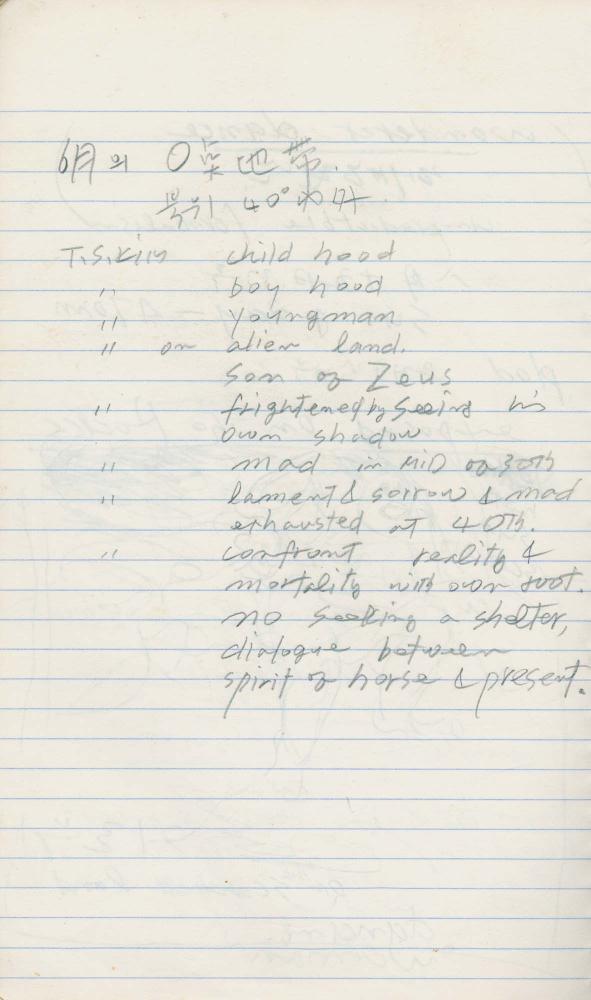 6月의 0点地帯.
북위 40°와 다
T.S.Kim child hood
" boy hood
" youngman
" on alien land.
son of Zeus
" frightened by seeing his
own shadow
" mad in MID of 30th
" lament & sorrow & mad
exhausted at 40th.
" confront reality &
mortality with own foot.
no seeking a shelter,
dialogue between
spirit of horse & present.